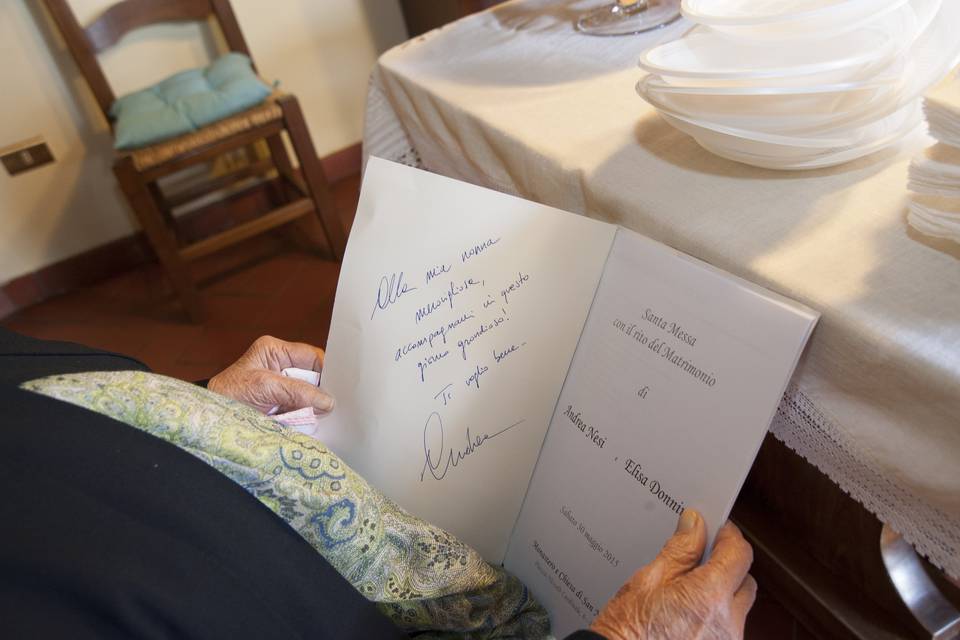 Alla mia nonna
meravigliosa,
accompagnami in questo
giorno grandioso!
Ti voglio bene-
Andrea
Santa Messa
con il rito del Matrimonio
di
Andrea Nesi
, Elisa Donnin
Sabato 30 maggio 2015
Monastero e Chiesa di San